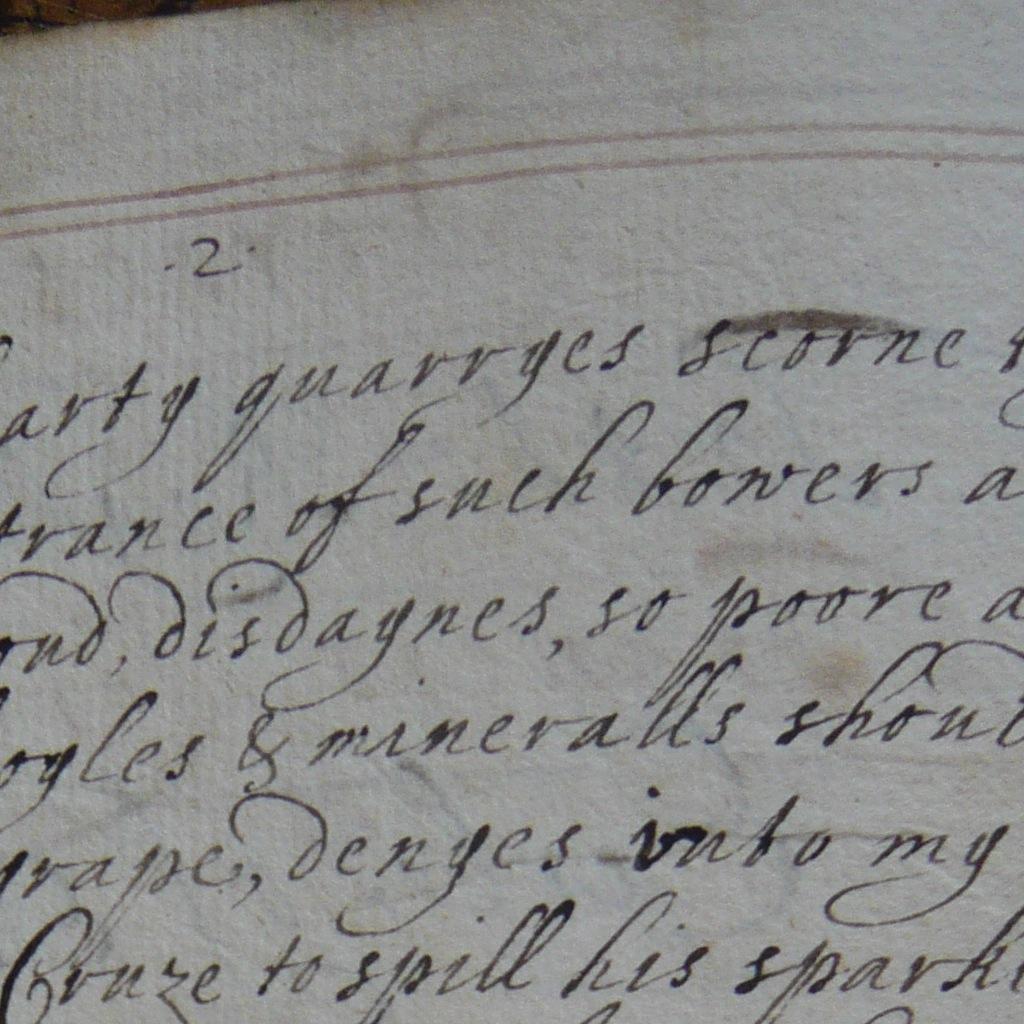 .2.
arty quarryes scorne
trance of such bowers a
oud, disdaynes, so poore a
oyles & mineralls shoul
rape, denyes into my
Cruze to spill his spark